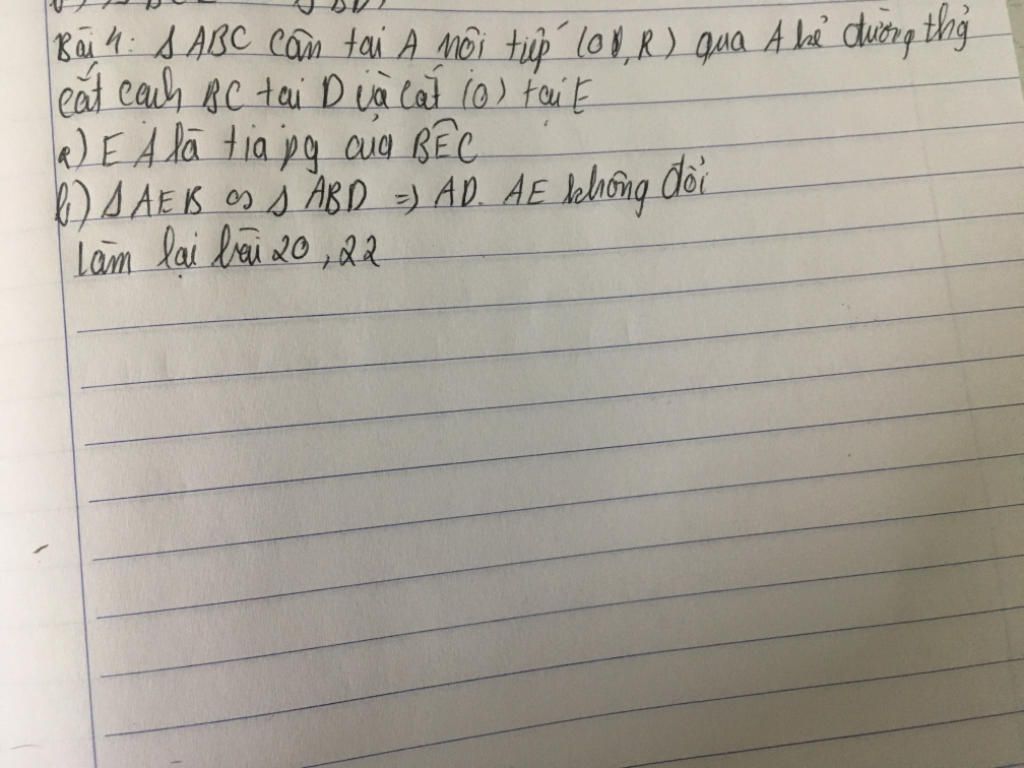 Bài 4: Δ ABC cân tại A nội tiếp (O, R) qua A kẻ đường thg
cắt cạnh BC tại D và cắt (O) tại E
a) E A là tia pg của BÊC
b) Δ AEB ∽ Δ ABD => AD. AE không đổi
Làm lại bài 20, 22